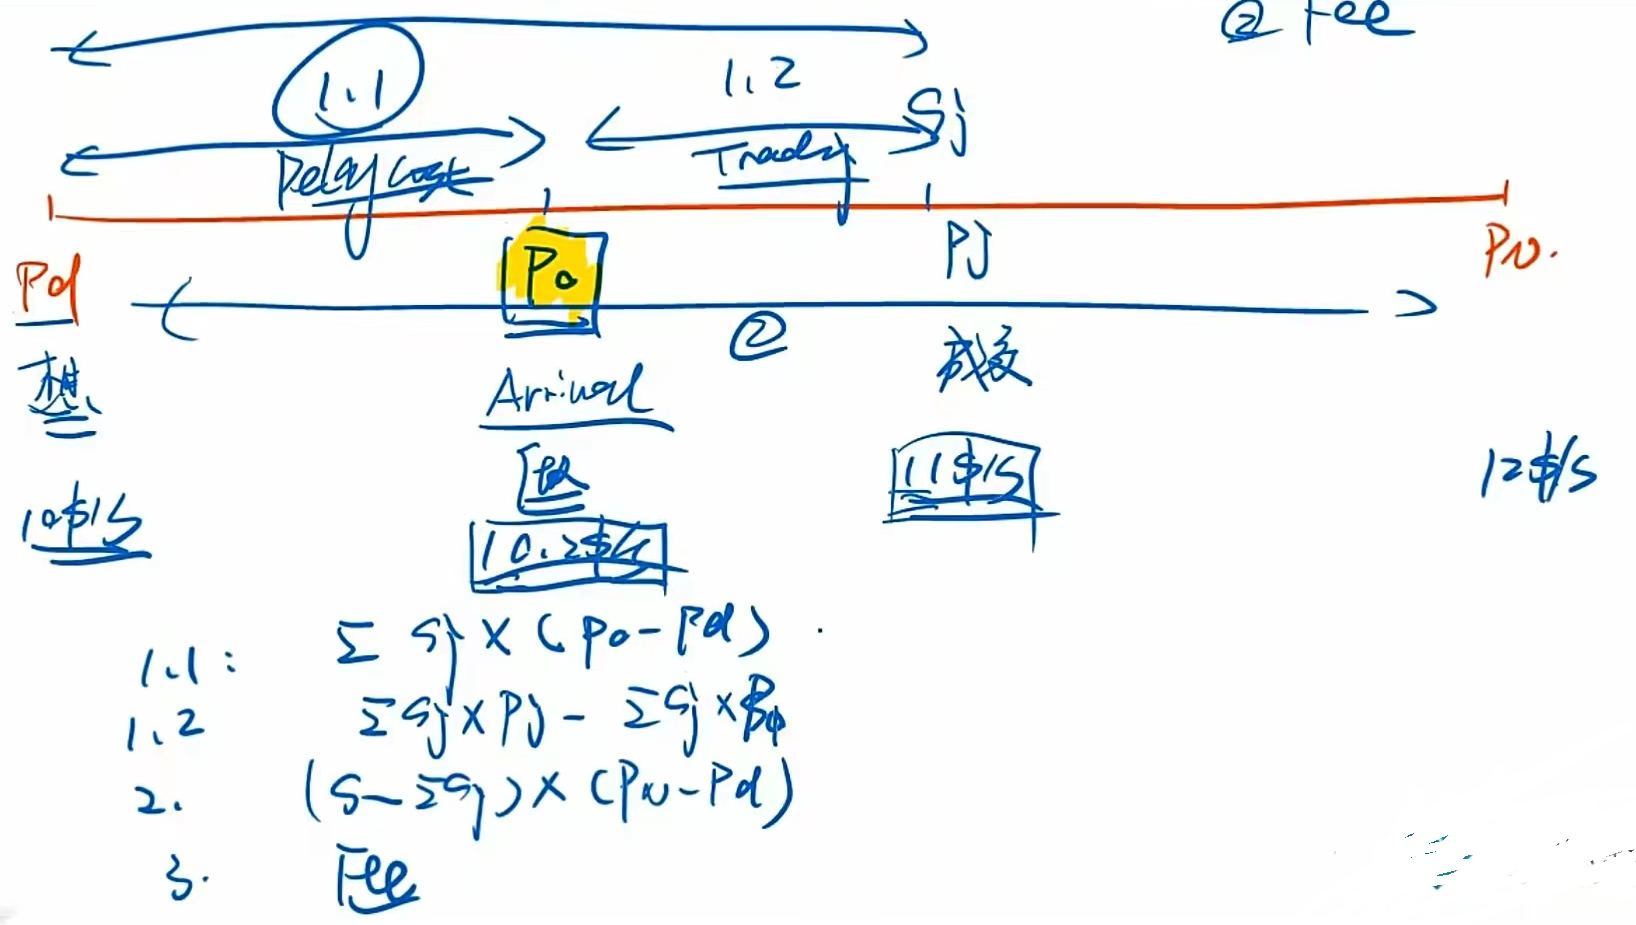 ② Fee
1.1
1.2
Sj
Delay cost
Trading
Pd
Po
PJ
PN.
②
想
Arrival
成交
做
10$/S
10.2$/S
11$/S
12$/S
1.1: Σ Sj × (Po - Pd)
1.2 ΣSj × Pj - ΣSj × Po
2. (S - ΣSj) × (PN - Pd)
3. Fee